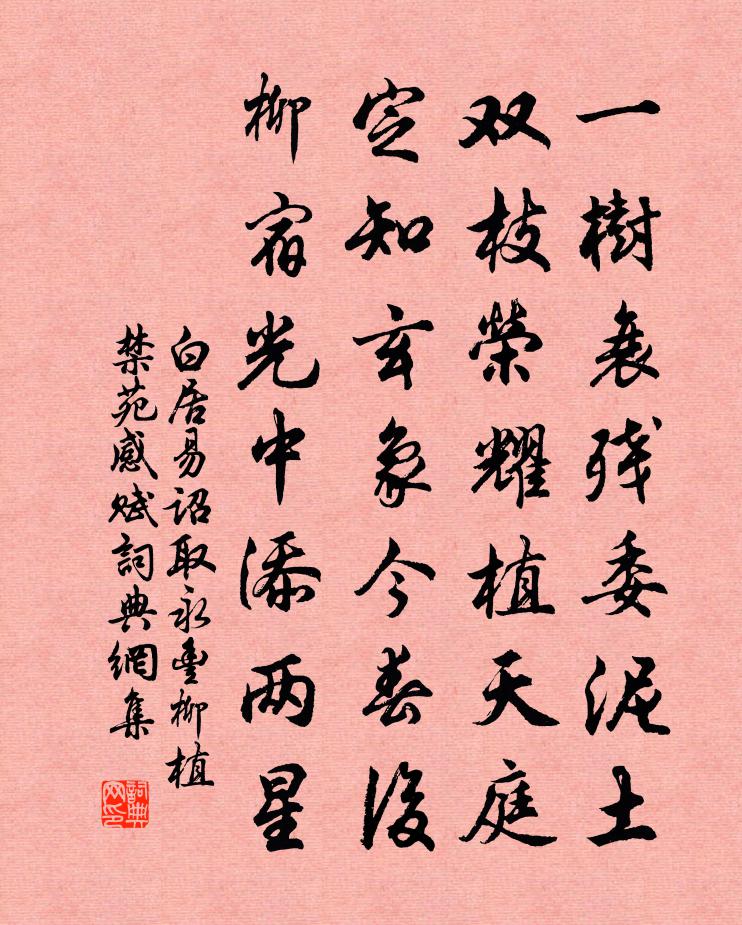 一樹衰残委泥土
双枝榮耀植天庭
定知玄象今春後
柳宿光中添两星
白居易詔取永豊柳植
禁苑感赋詞典網集
詞典网印